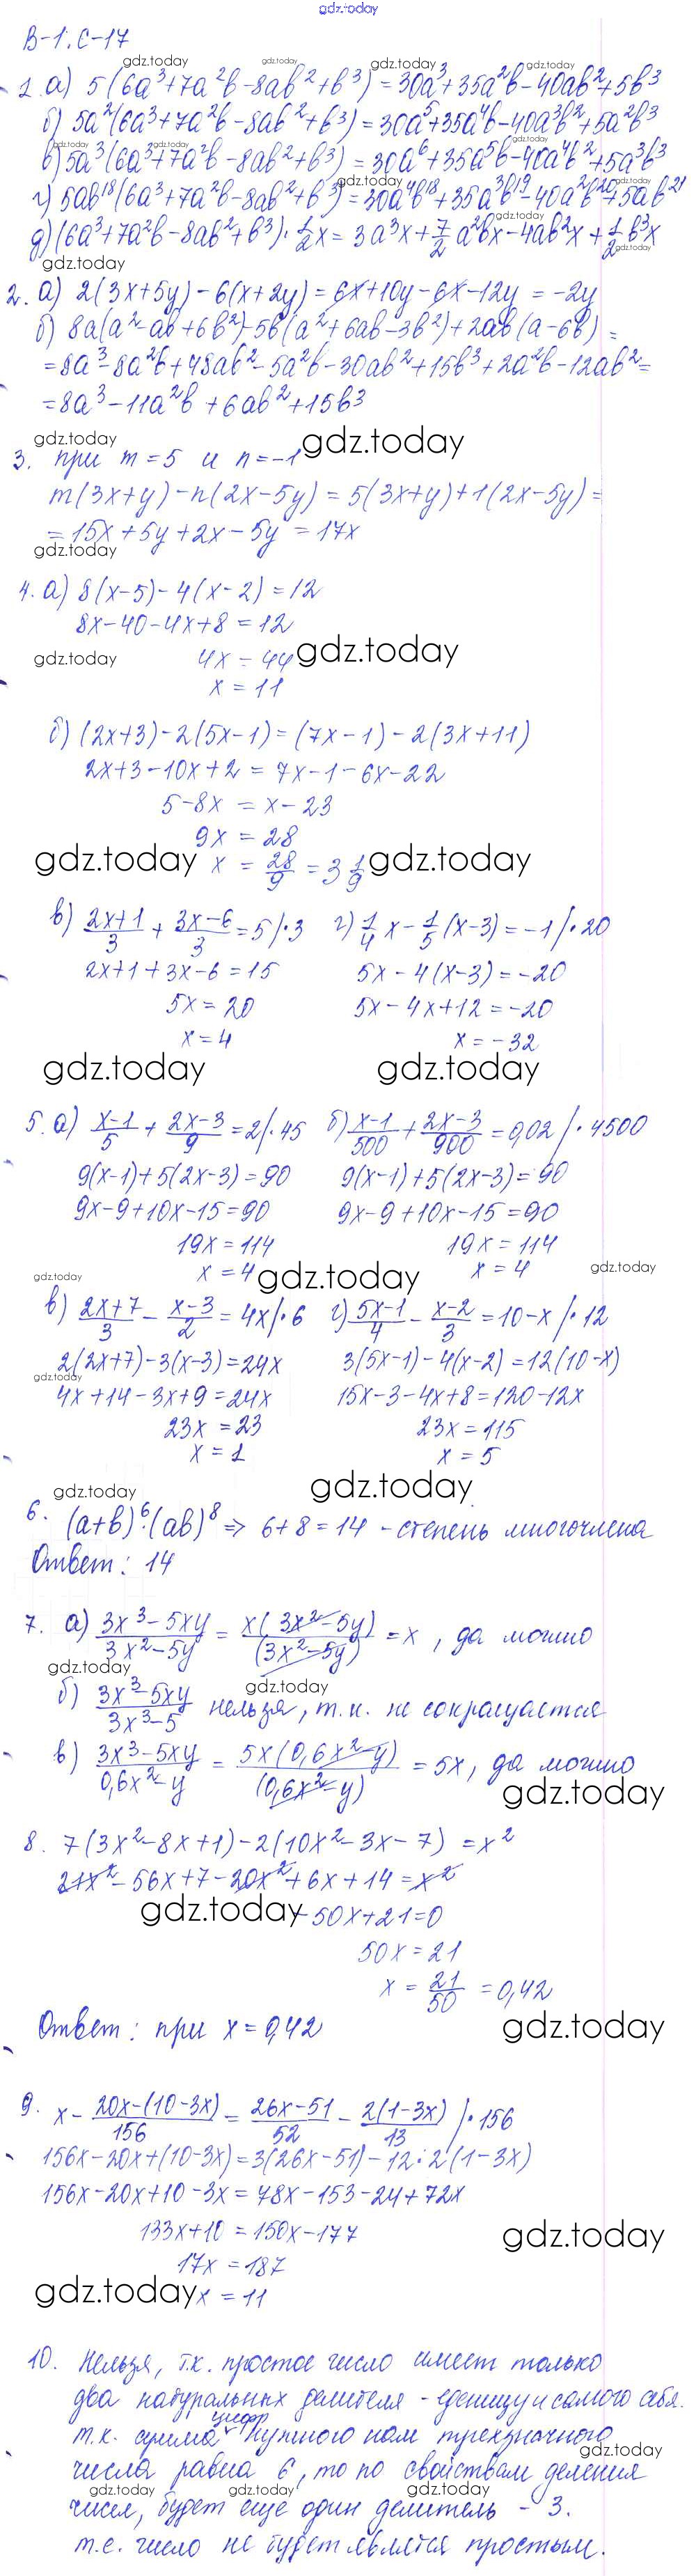 gdz.today
В-1. С-17
gdz.today gdz.today gdz.today gdz.today
1. а) 5(6a³+7a²b-8ab²+b³)=30a³+35a²b-40ab²+5b³
б) 5a²(6a³+7a²b-8ab²+b³)=30a⁵+35a⁴b-40a³b²+5a²b³
в) 5a³(6a³+7a²b-8ab²+b³)=30a⁶+35a⁵b-40a⁴b²+5a³b³
г) 5ab¹⁸(6a³+7a²b-8ab²+b³)=30a⁴b¹⁸+35a³b¹⁹-40a²b²⁰+5ab²¹
д) (6a³+7a²b-8ab²+b³)·1/2x=3a³x+7/2a²bx-4ab²x+1/2b³x
gdz.today
2. а) 2(3x+5y)-6(x+2y)=6x+10y-6x-12y=-2y
б) 8a(a²-ab+6b²)-5b(a²+6ab-3b²)+2ab(a-6b)=
=8a³-8a²b+48ab²-5a²b-30ab²+15b³+2a²b-12ab²=
=8a³-11a²b+6ab²+15b³
gdz.today gdz.today
3. при m=5 и n=-1
m(3x+y)-n(2x-5y)=5(3x+y)+1(2x-5y)=
=15x+5y+2x-5y=17x
gdz.today
4. а) 8(x-5)-4(x-2)=12
8x-40-4x+8=12
gdz.today 4x=44 gdz.today
x=11
б) (2x+3)-2(5x-1)=(7x-1)-2(3x+11)
2x+3-10x+2=7x-1-6x-22
5-8x=x-23
9x=28
gdz.today x=28/9=3 1/9 gdz.today
в) (2x+1)/3+(3x-6)/3=5/·3 г) 1/4x-1/5(x-3)=-1/·20
2x+1+3x-6=15 5x-4(x-3)=-20
5x=20 5x-4x+12=-20
x=4 x=-32
gdz.today gdz.today
5. а) (x-1)/5+(2x-3)/9=2/·45 б) (x-1)/500+(2x-3)/900=0,02/·4500
9(x-1)+5(2x-3)=90 9(x-1)+5(2x-3)=90
9x-9+10x-15=90 9x-9+10x-15=90
19x=114 19x=114
gdz.today x=4 gdz.today x=4 gdz.today
в) (2x+7)/3-(x-3)/2=4x/·6 г) (5x-1)/4-(x-2)/3=10-x/·12
2(2x+7)-3(x-3)=24x 3(5x-1)-4(x-2)=12(10-x)
gdz.today
4x+14-3x+9=24x 15x-3-4x+8=120-12x
23x=23 23x=115
x=1 x=5
gdz.today gdz.today
6. (a+b)⁶·(ab)⁸ ⇒ 6+8=14 - степень многочлена
Ответ: 14
7. а) (3x³-5xy)/(3x²-5y)=x(3x²-5y)/(3x²-5y)=x, да можно
gdz.today gdz.today
б) (3x³-5xy)/(3x³-5) нельзя, т.к. не сокращается
в) (3x³-5xy)/(0,6x²-y)=5x(0,6x²-y)/(0,6x²-y)=5x, да можно
gdz.today
8. 7(3x²-8x+1)-2(10x²-3x-7)=x²
21x²-56x+7-20x²+6x+14=x²
gdz.today -50x+21=0
50x=21
x=21/50=0,42
Ответ: при x=0,42 gdz.today
9. x-(20x-(10-3x))/156=(26x-51)/52-2(1-3x)/13/·156
156x-20x+(10-3x)=3(26x-51)-12·2(1-3x)
156x-20x+10-3x=78x-153-24+72x
133x+10=150x-177 gdz.today
17x=187
gdz.today x=11
10. Нельзя, т.к. простое число имеет только
два натуральных делителя - еденицу и самого себя.
т.к. сумма цифр нужного нам трехзначного
gdz.today
числа равна 6, то по свойствам деления
gdz.today gdz.today gdz.today
чисел, будет еще один делитель - 3.
т.е. число не будет является простым.